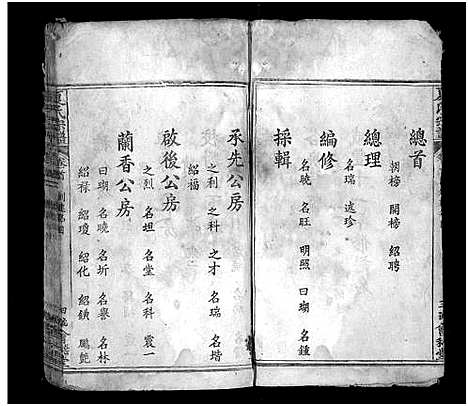 總首
朝榜 開榜 紹聘
總理
名瑞 述珍
編修
名曉 名旺 明照 曰瑚 名鍾
採輯
承先公房
之利 之科 之才 名瑞 名堦
紹福
啟後公房
之烈 名坦 名堂 名科 震一
蘭香公房
曰瑚 名曉 名圻 名譽 名林
紹祿 紹瓊 紹化 紹鐄 鵬艷